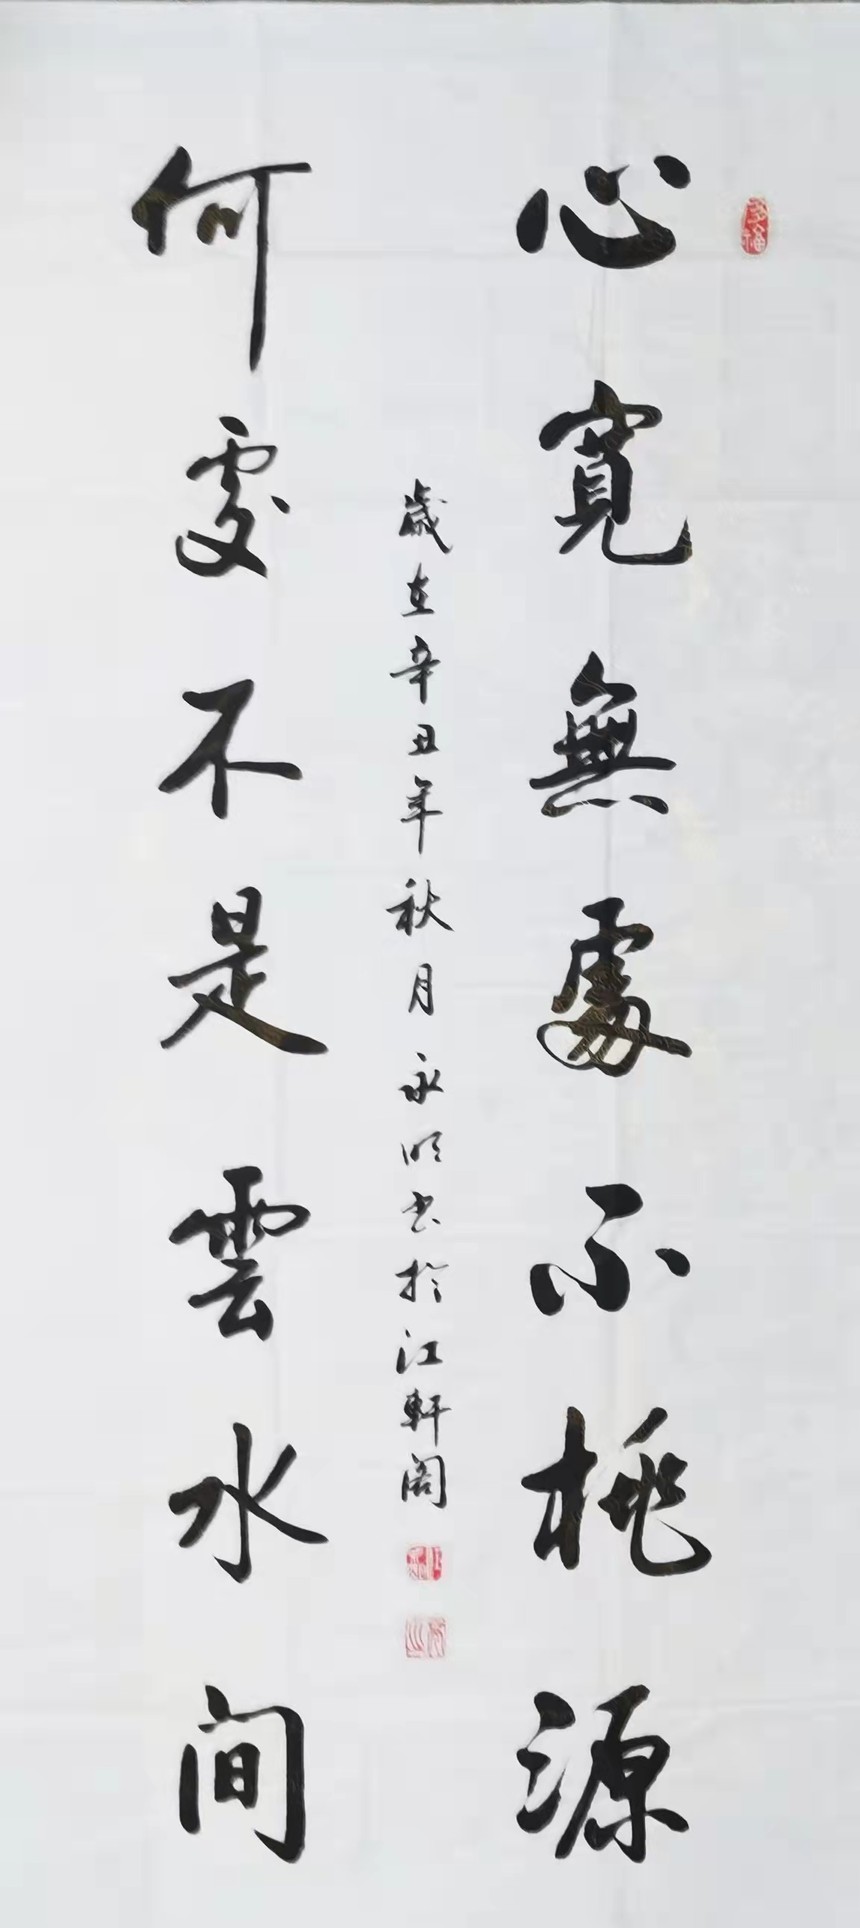 多福
心寬無處不桃源
歲在辛丑年秋月永明书於江軒阁
何處不是雲水间